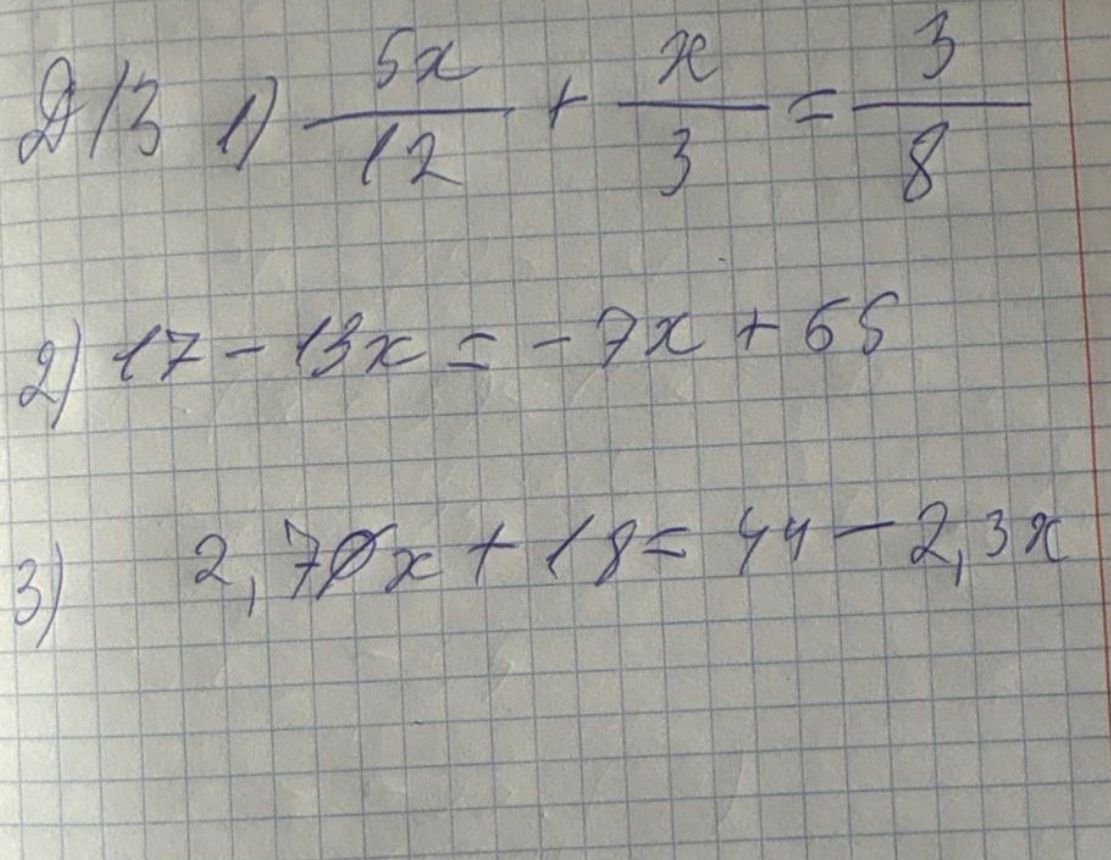 Д/З 1) 5x/12 + x/3 = 3/8
2) 17 - 13x = - 7x + 65
3) 2,7x + 18 = 44 - 2,3x